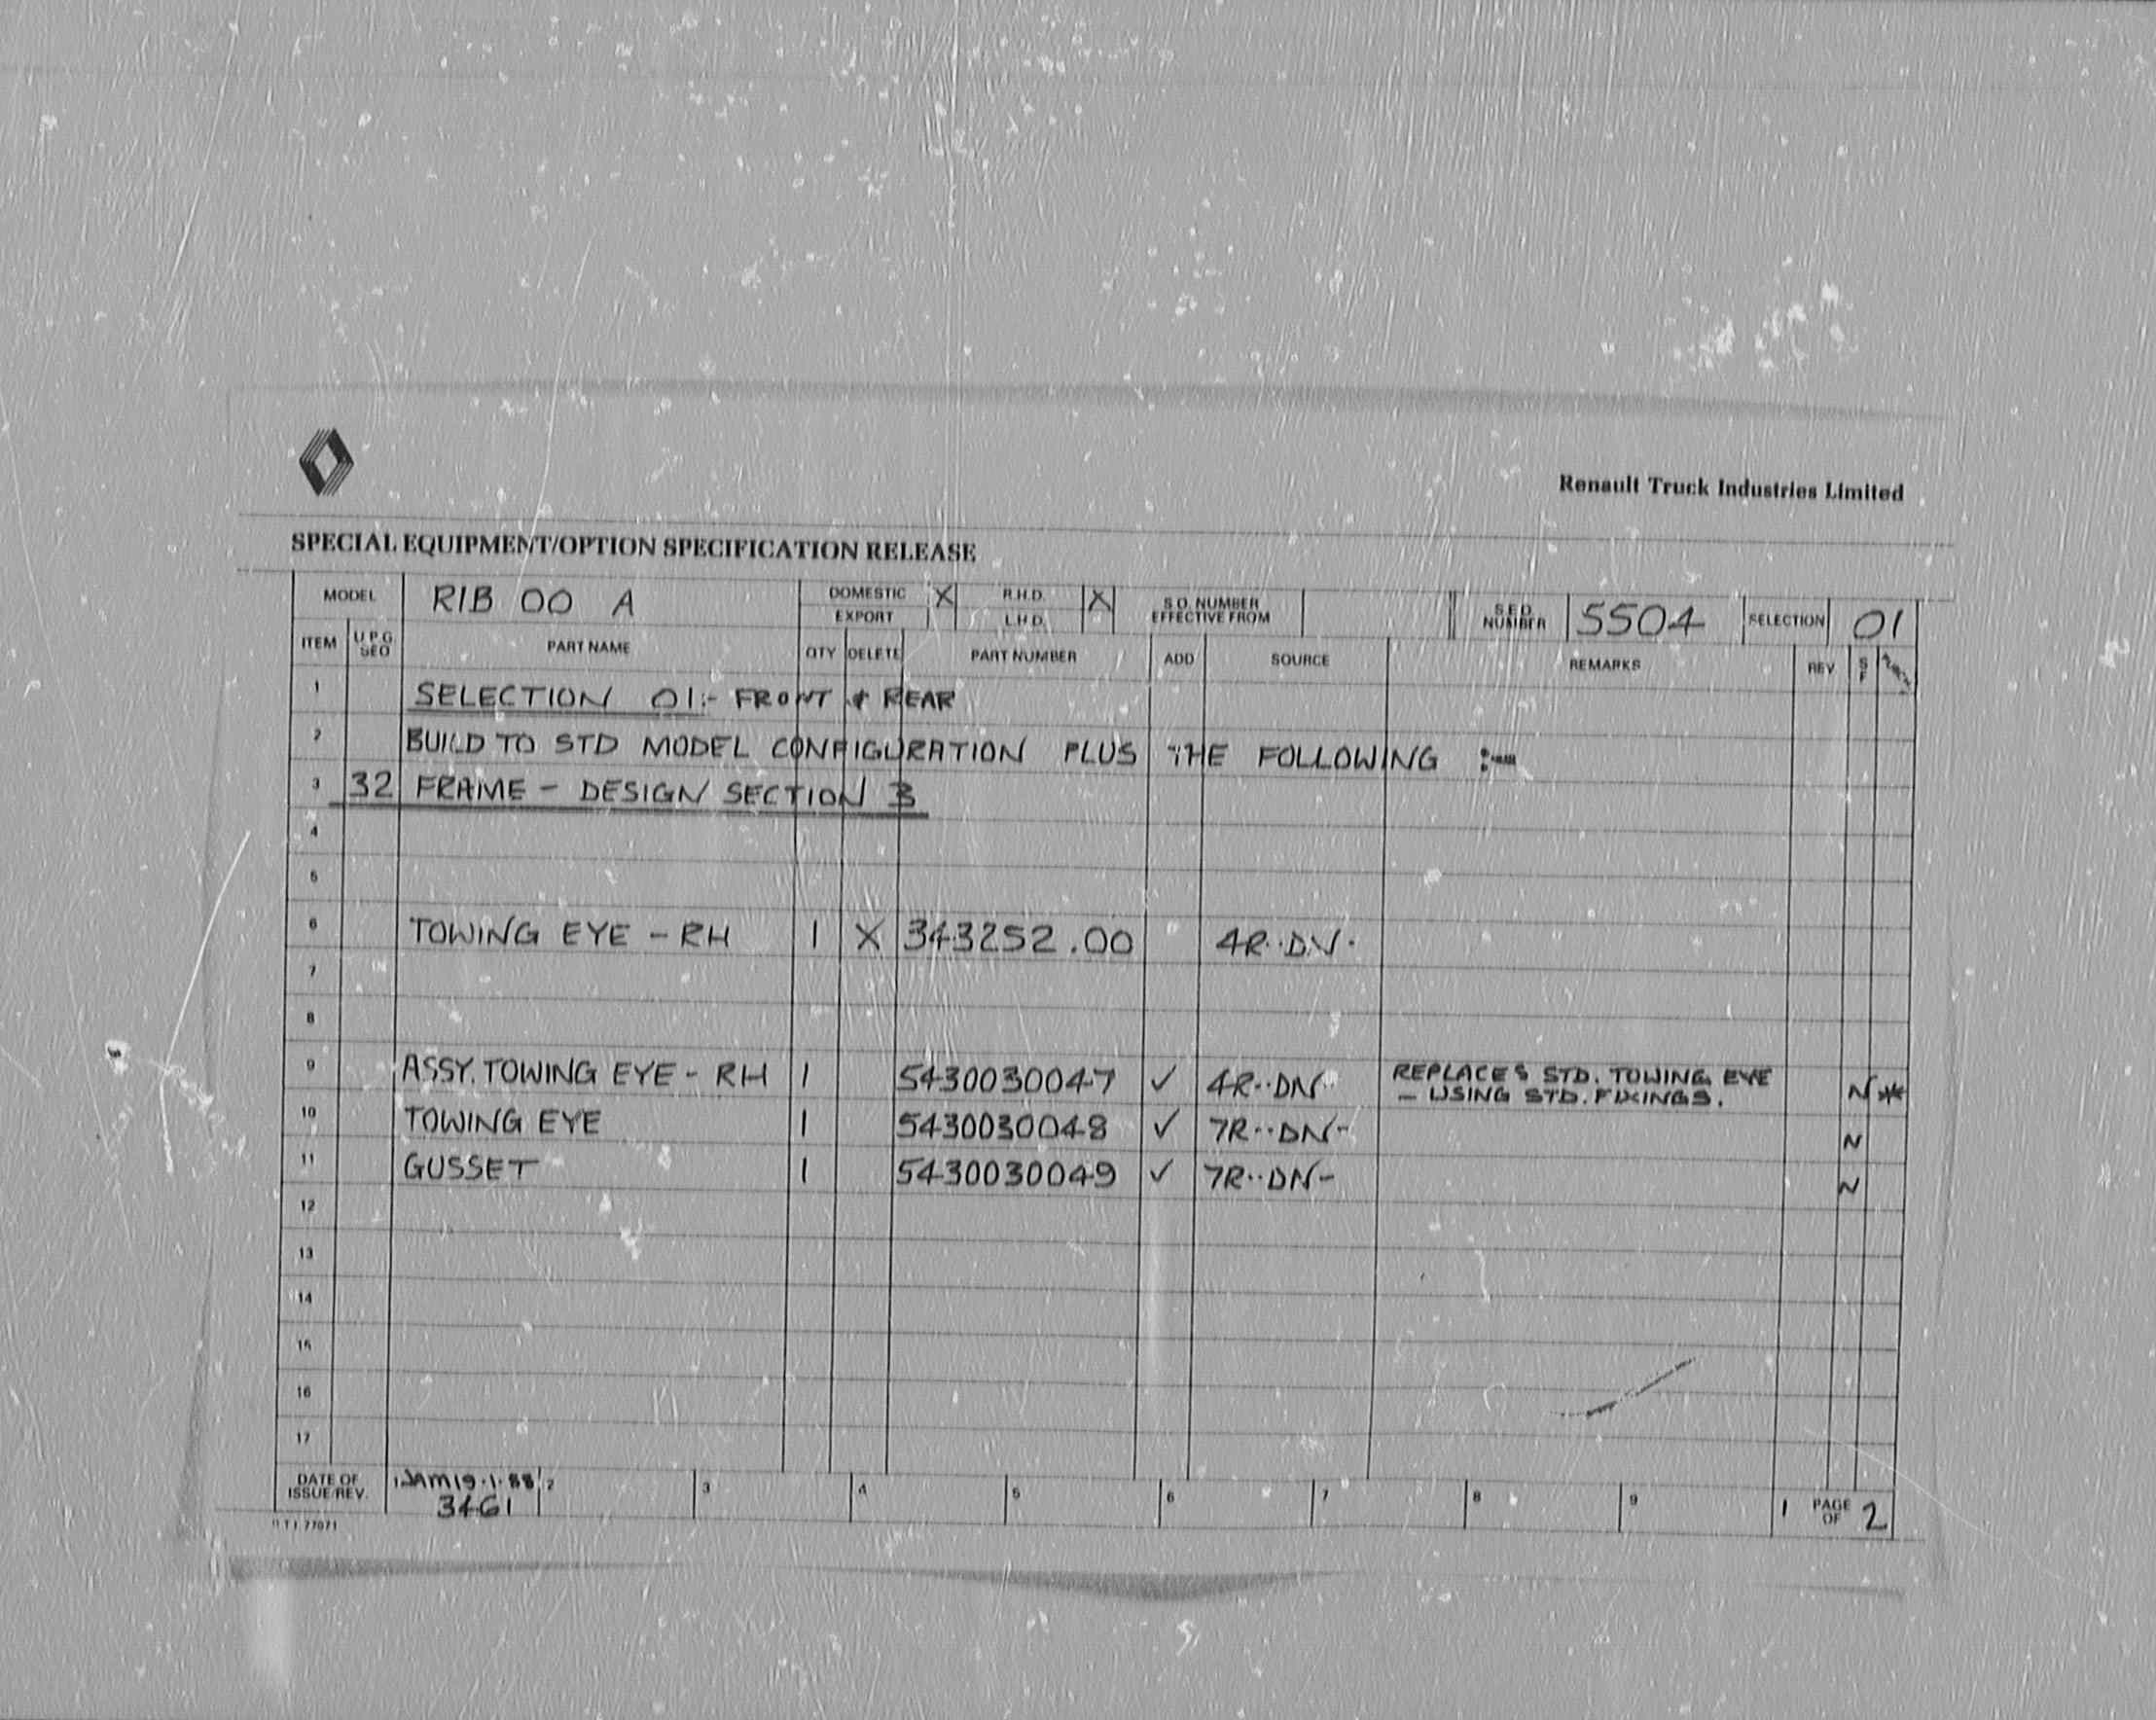 Renault Truck Industries Limited
SPECIAL EQUIPMENT/OPTION SPECIFICATION RELEASE
MODEL RIB 00 A DOMESTIC X R.H.D. X S.O. NUMBER EFFECTIVE FROM S.E.O. NUMBER 5504 SELECTION 01
EXPORT L.H.D.
ITEM U.P.G. SEQ PART NAME QTY DELETE PART NUMBER ADD SOURCE REMARKS REV S F
1 SELECTION 01:- FRONT & REAR
2 BUILD TO STD MODEL CONFIGURATION PLUS THE FOLLOWING :-
3 32 FRAME - DESIGN SECTION 3
4
5
6 TOWING EYE - RH 1 X 343252.00 4R··DN·
7
8
9 ASSY. TOWING EYE - RH 1 5430030047 ✓ 4R··DN· REPLACES STD. TOWING EYE
- USING STD. FIXINGS. N *
10 TOWING EYE 1 5430030048 ✓ 7R··DN- N
11 GUSSET 1 5430030049 ✓ 7R··DN- N
12
13
14
15
16
17
DATE OF ISSUE/REV. 1 JAM 19·1·88 2 3 4 5 6 7 8 9 1 PAGE OF 2
3461
RTI 77071